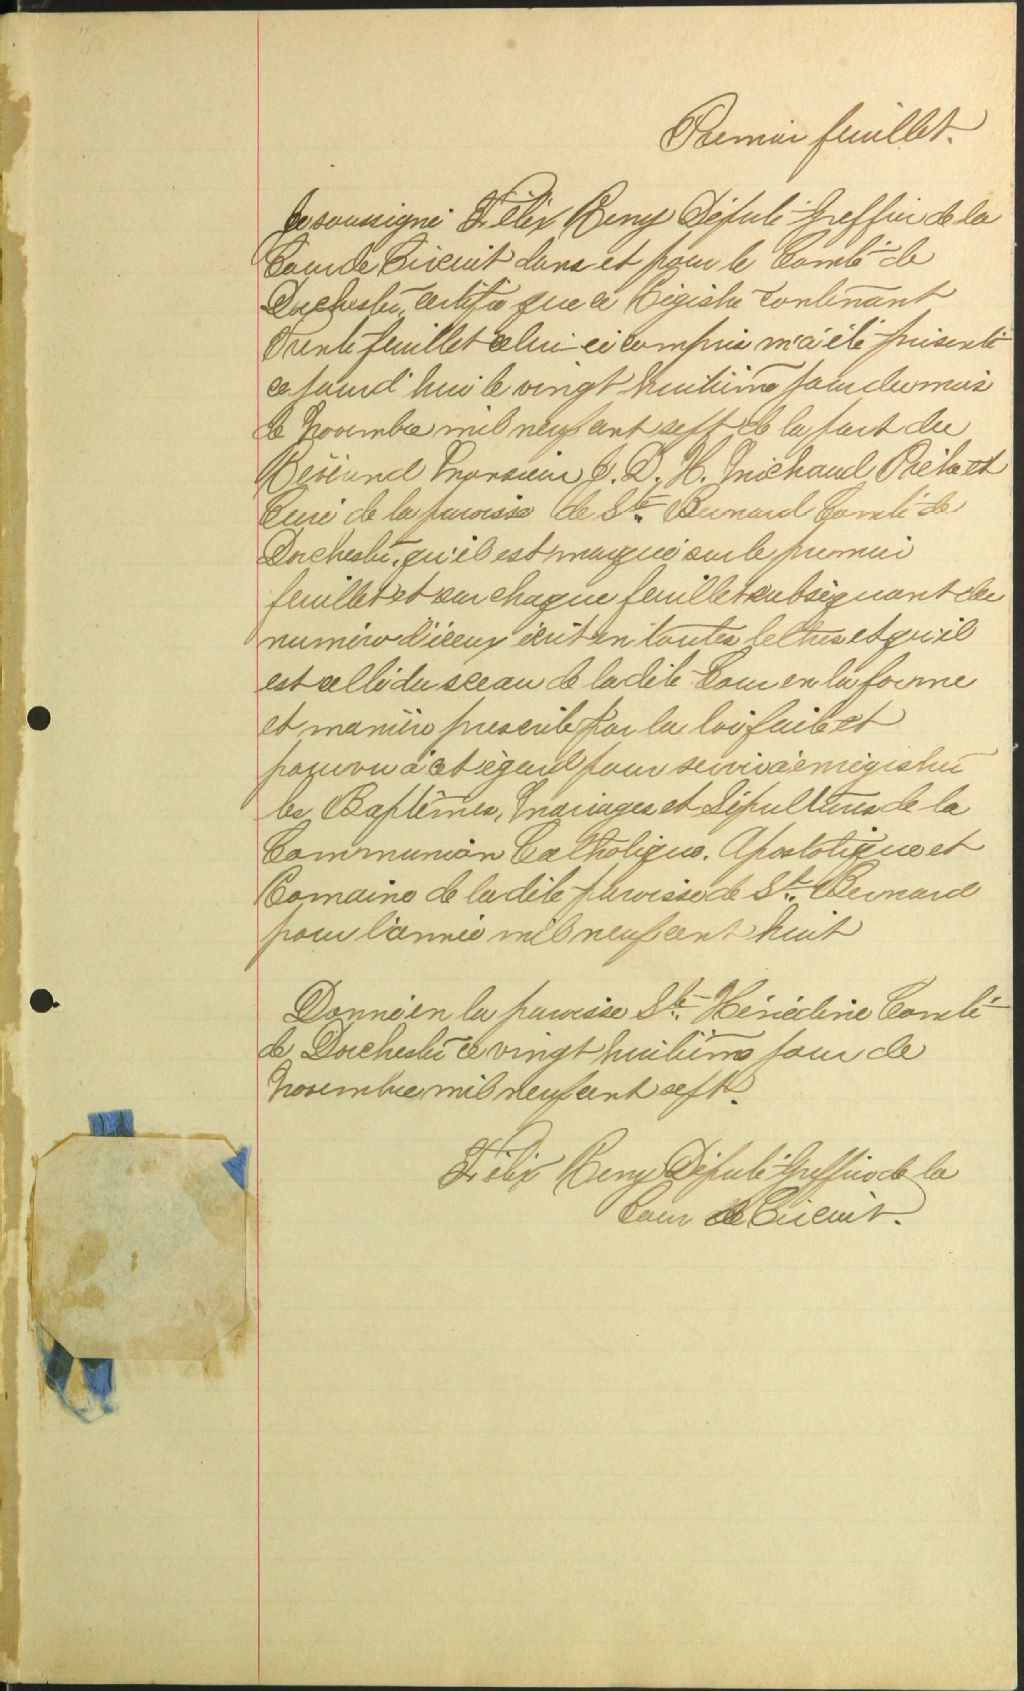 Premier feuillet.
Je soussigné Félix Remy Député-Greffier de la
Cour de Circuit dans et pour le Comté de
Dorchester, certifie que ce Régistre contenant
Trente feuillet celui-ci compris m'a été présenté
ce jourd'hui le vingt huitième jour du mois
de Novembre mil neuf cent sept de la part du
Révérend Monsieur J. D. H. Michaud Prêtre et
Curé de la paroisse de St. Bernard Comté de
Dorchester, qu'il est marqué sur le premier
feuillet et sur chaque feuillet subséquant du
numéro d'iceux écrit en toutes lettres et qu'il
est scellé du sceau de la dite Cour en la forme
et manière prescrite par la loi faite et
pourvu à cet égard pour servir à enrégistrer
les Baptêmes, Mariages et Sépultures de la
Communion Catholique. Apostolique et
Romaine de la dite paroisse de St. Bernard
pour l'année mil neuf cent huit
Donné en la paroisse Ste. Hénédine Comté
de Dorchester ce vingt huitième jour de
Novembre mil neuf cent sept.
Félix Remy Député-Greffier de la
Cour de Circuit.